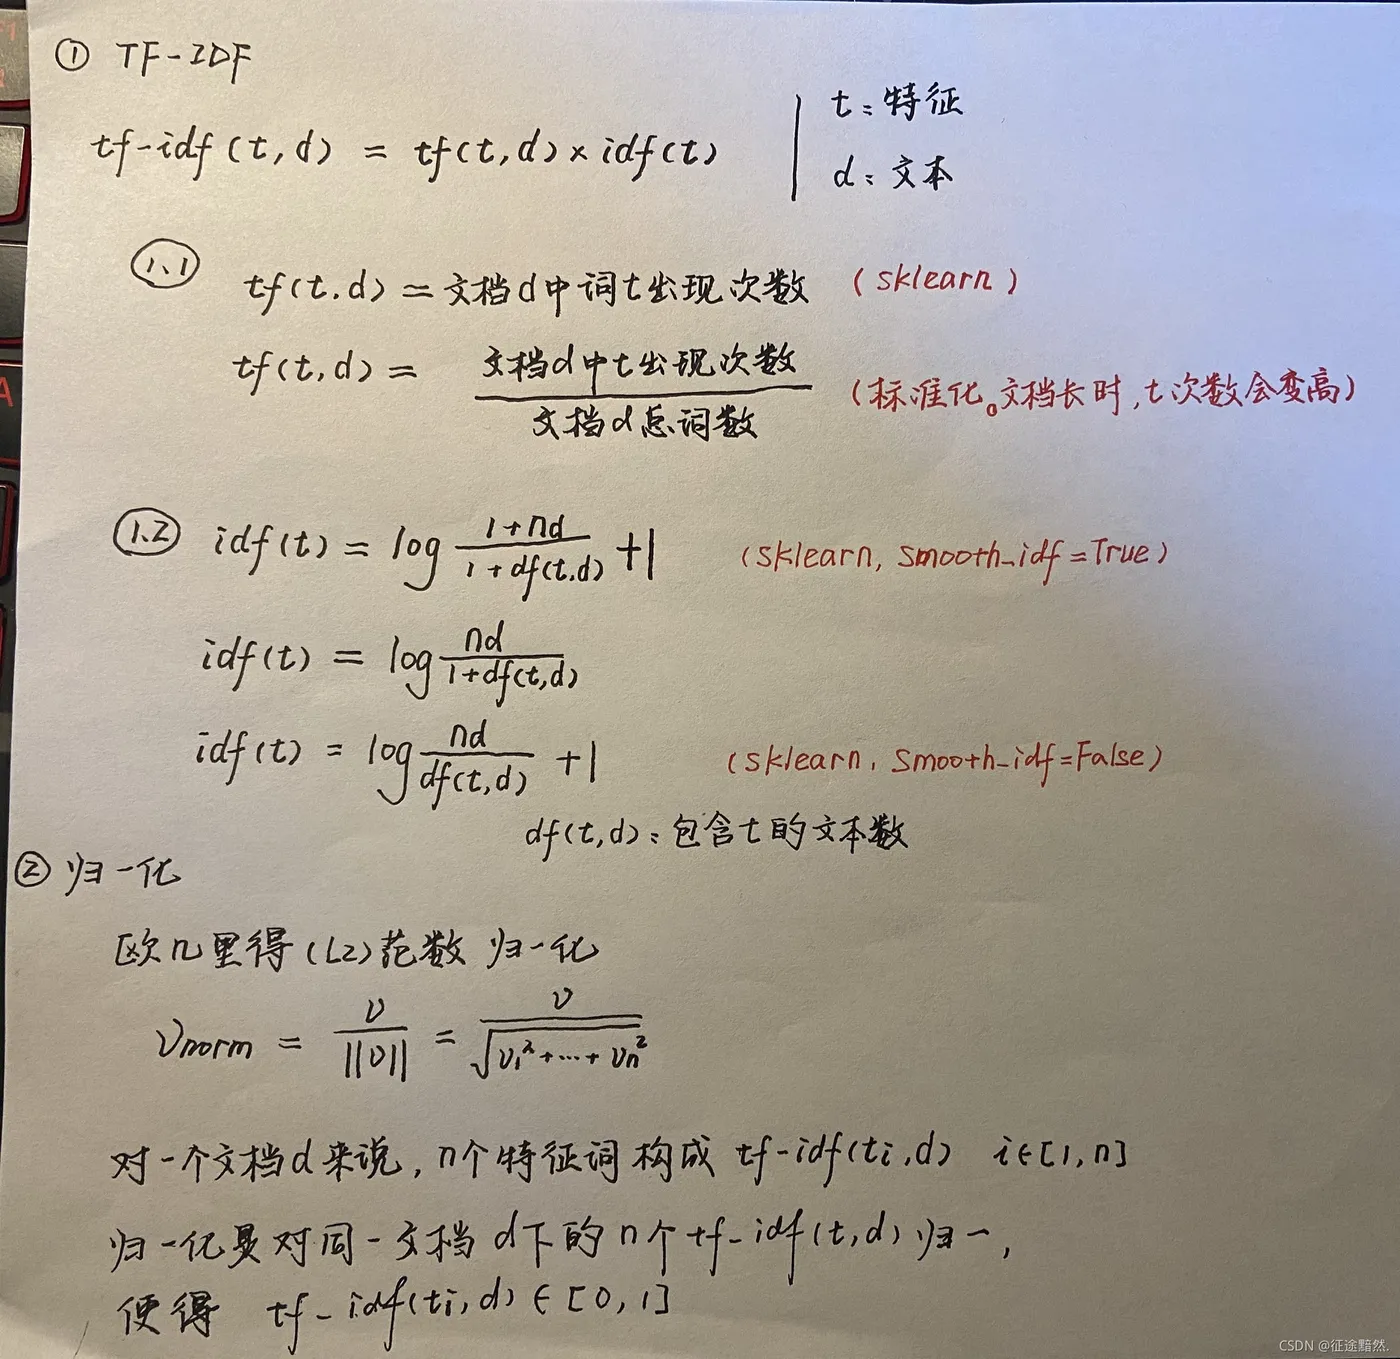 ① TF-IDF
tf-idf(t,d) = tf(t,d)×idf(t)
t：特征
d：文本
1.1 tf(t.d)=文档d中词t出现次数 (sklearn)
tf(t,d) = 文档d中t出现次数 / 文档d总词数 (标准化。文档长时,t次数会变高)
1.2 idf(t) = log (1+nd)/(1+df(t.d)) +1 (sklearn, smooth_idf=True)
idf(t) = log nd/(1+df(t,d))
idf(t) = log nd/df(t,d) +1 (sklearn, smooth_idf=False)
df(t,d)：包含t的文本数
② 归一化
欧几里得(L2)范数 归一化
νnorm = ν/||ν|| = ν/√(ν1²+…+νn²)
对一个文档d来说, n个特征词构成 tf-idf(ti,d) i∈[1,n]
归一化是对同一文档d下的n个tf-idf(t,d)归一,
使得 tf-idf(ti,d)∈[0,1]
CSDN @征途黯然.